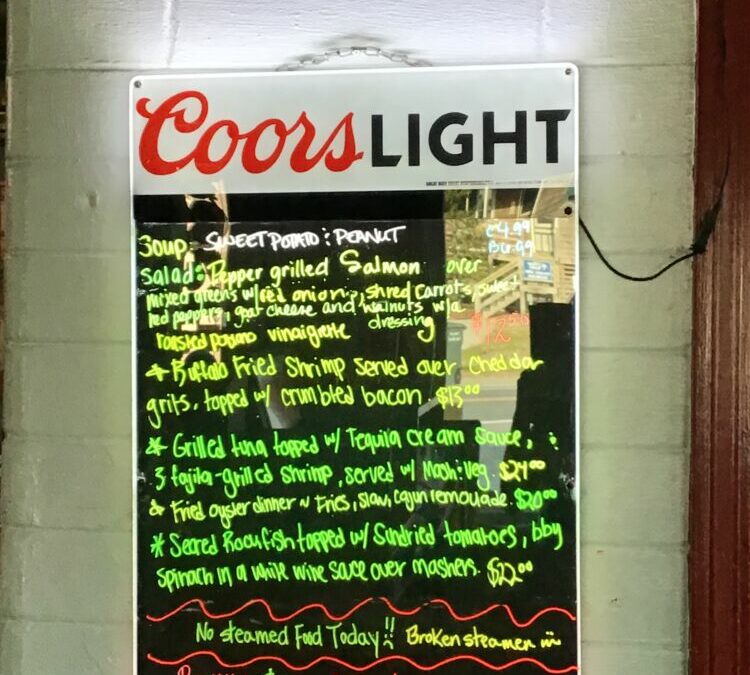 Coors LIGHT
Soup: SWEET POTATO & PEANUT C4.99
B6.99
Salad: Pepper grilled Salmon over
mixed greens w/ red onion, shred carrots, sweet
red peppers, goat cheese and walnuts w/a
roasted potato vinaigrette dressing $12
+ Buffalo Fried Shrimp served over Cheddar
grits, topped w/ crumbled bacon. $13.00
* Grilled tuna topped w/ Tequila cream sauce, &
3 fajita-grilled shrimp, served w/ Mash & Veg. $24.00
& Fried oyster dinner ~ Fries, slaw, cajun remoulade. $20.00
* Seared Rockfish topped w/ Sundried tomatoes, bby
spinach in a white wine sace over mashers. $22.00
No steamed Food Today!! Broken steamer